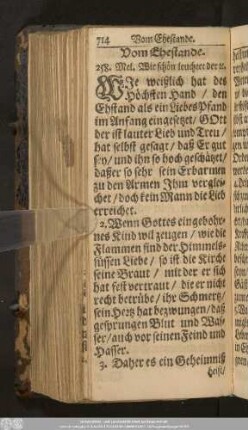 714 Vom Ehestande.
Vom Ehestande.
258. Mel. Wie schön leuchtet der ꝛc.
WIe weißlich hat des
Höchsten Hand / den
Ehstand als ein Liebes Pfand
im Anfang eingesetzet / GOtt
der ist lauter Lieb und Treu /
hat selbst gesagt / daß Er gut
sey / und ihn so hoch geschätzet /
daß er so sehr sein Erbarmen
zu den Armen Ihm verglei-
chet / doch kein Mann die Lieb
erreichet.
2. Wenn Gottes eingebohr-
nes Kind wil zeugen / wie die
Flammen sind der Himmels-
süssen Liebe / so ist die Kirche
seine Braut / mit der er sich
hat fest vertraut / die er nicht
recht betrübe / ihr Schmertz /
sein Hertz hat bezwungen / daß
gesprungen Blut und Was-
ser / auch vor seinen Feind und
Hasser.
3. Daher es ein Geheimniß
heist /